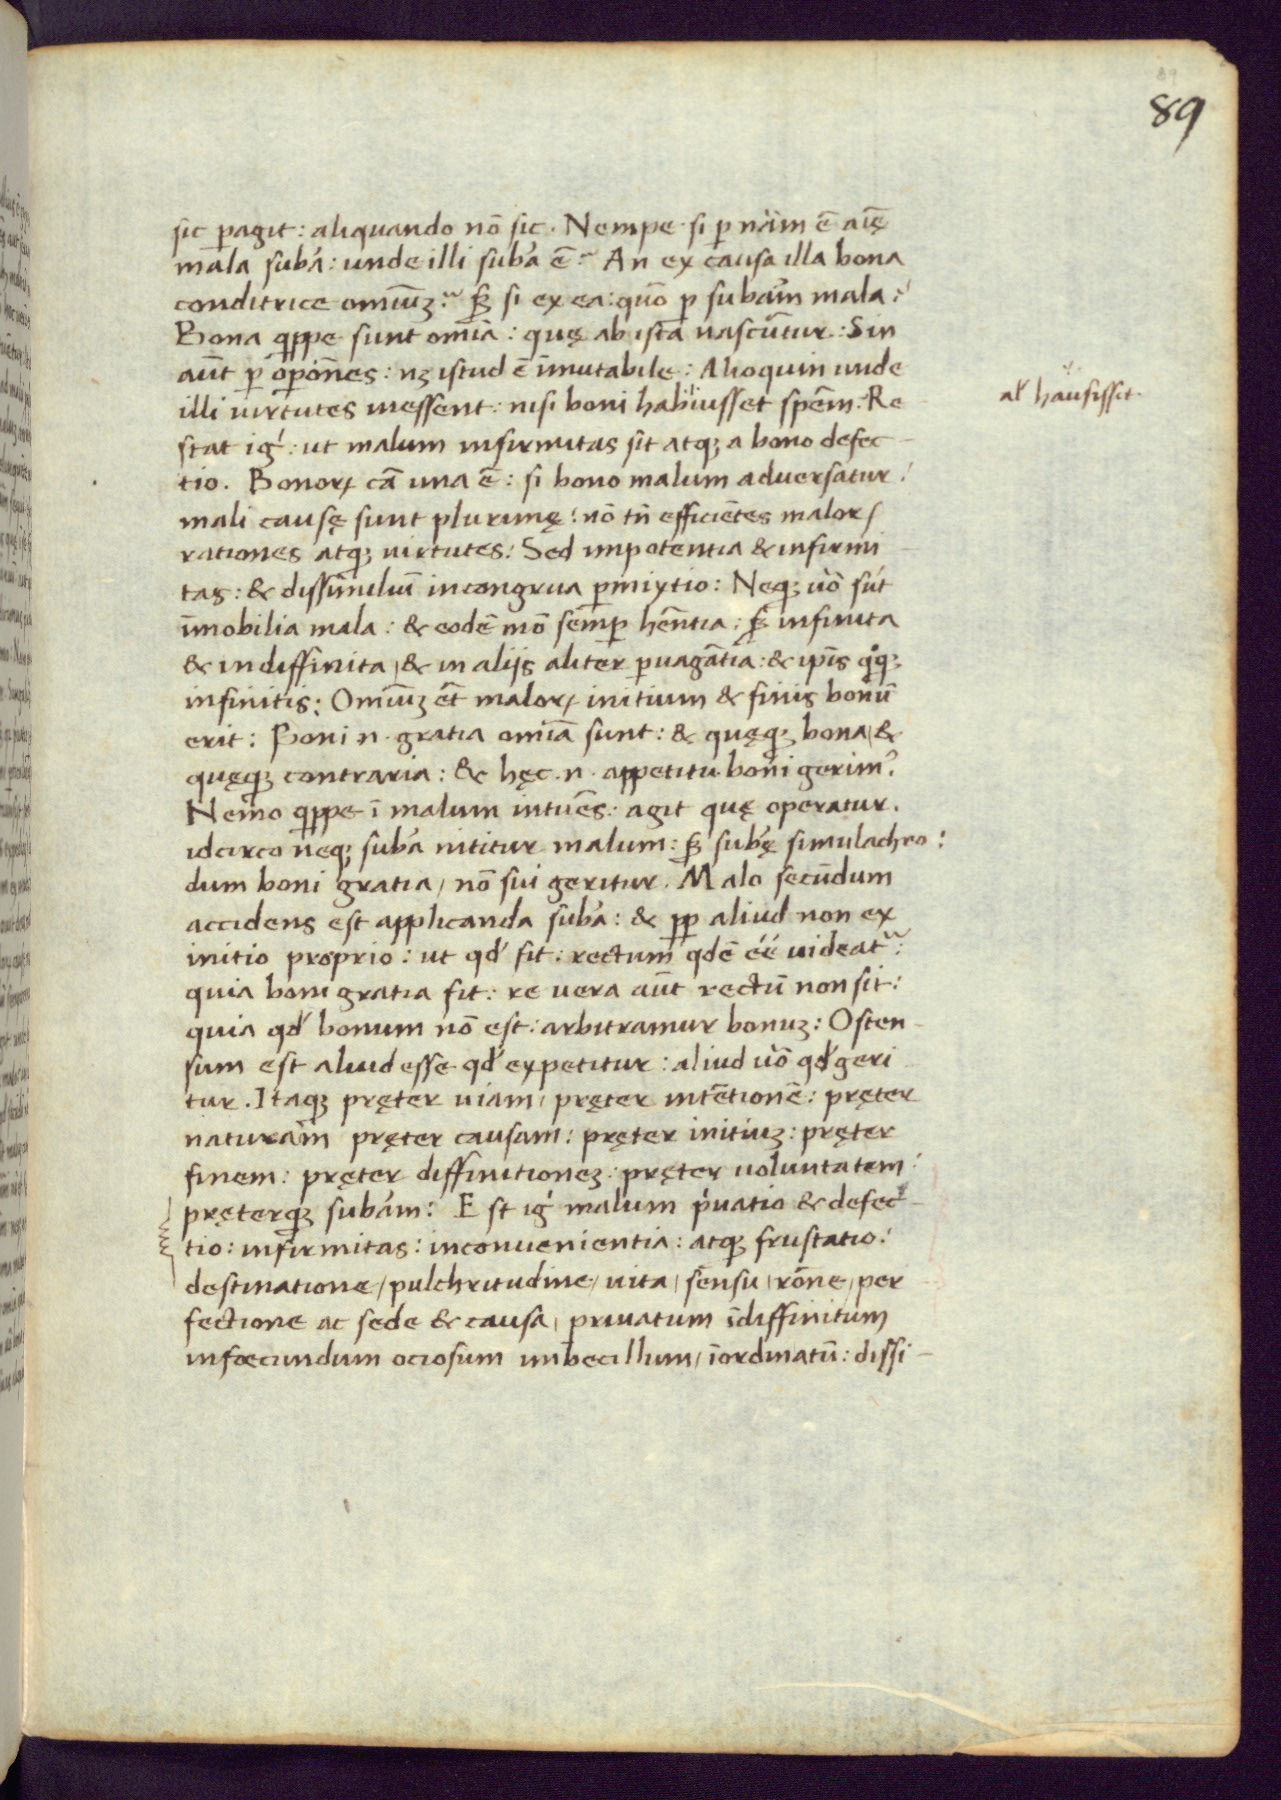 89
sic ꝑagit: aliquando nō sic. Nempe si ꝑ nãm ē aīę
mala subã: unde illi subã ē? An ex causa illa bona
conditrice omiūꝫ? sꝫ si ex ea: quō ꝑ subãm mala?
Bona qppe sunt omīa: quę ab ista nascūtur: Sin
aūt ꝑ oꝑōnes: nꝫ istud ē īmutabile: Alioquin unde
illi virtutes inessent: nisi boni habuisset spēm. Re
al' hausisset
stat ig': ut malum infirmitas sit atqꝫ a bono defec-
tio. Bonoꝝ cā una ē: si bono malum adversatur:
mali causę sunt plurimę: nō tn̄ efficiētes maloꝝ
rationes atqꝫ virtutes: Sed impotentia & infirmi-
tas: & dissimiliū incongrua ꝑmixtio: Neqꝫ uō sūt
īmobilia mala: & eodē mō semꝑ hēntia: sꝫ infinita
& indiffinita, & in alijs aliter ꝑvagātia: & ip̄is qqꝫ
infinitis: Omiūꝫ ēt maloꝝ initium & finis bonū
erit: Boni .n. gratia omīa sunt: & quęqꝫ bona, &
quęqꝫ contraria: & hęc .n. appetitu boni gerim⁹.
Nemo qppe ī malum intuēs: agit quę operatur.
idcirco neqꝫ subã nititur malum: sꝫ subę simulachro:
dum boni gratia, nō sui geritur. Malo secūdum
accidens est applicanda subã: & ꝓp aliud non ex
initio proprio: ut qd' fit: rectum qdē éé uideat~:
quia boni gratia fit: re vera aūt rectū non sit:
quia qd' bonum nō est: arbitramur bonuꝫ: Osten-
sum est aliud esse qd' expetitur: aliud uō qd' geri
tur. Itaqꝫ pręter viam, pręter intētionē: pręter
naturam pręter causam: pręter initiuꝫ: pręter
finem: pręter diffinitioneꝫ: pręter voluntatem:
pręterqꝫ subãm: Est ig' malum p'vatio & defec-
tio: infirmitas: inconvenientia: atqꝫ frustatio:
destinatione, pulchritudine, vita, sensu, rōne, per
fectione ac sede & causa, privatum īdiffinitum
infœcundum ociosum imbecillum, īordinatū: dissi-